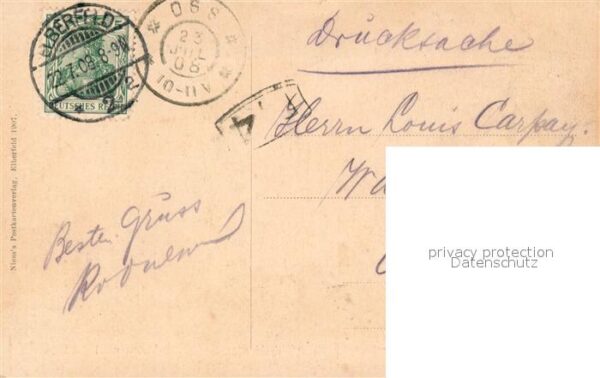 ELBERFELD
22.7.09.8-9N
DEUTSCHES REICH
OSS
23
10-11V
Drucksache
Herrn Louis Carpay.
Besten Gruss
Niem's Postkartenverlag, Elberfeld 1907.
privacy protection
Datenschutz